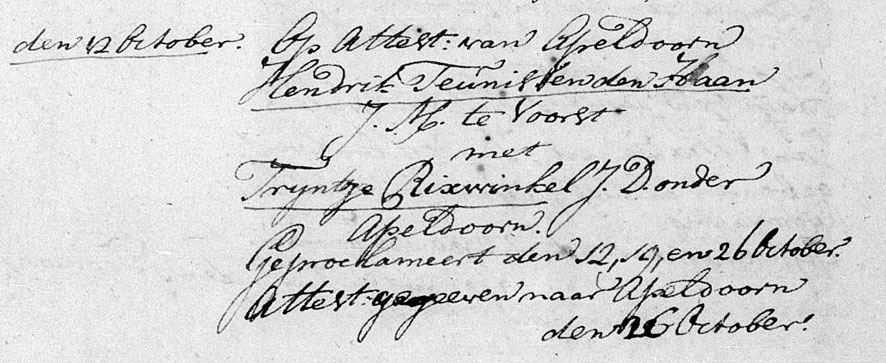 den 12 October. Op Attest: van Apeldoorn
Hendrik Teunissen den Haan
J. M. te Voorst
met
Tryntje Rixwinkel J. D. onder
Apeldoorn.
Geproclameert den 12, 19, en 26 October.
Attest: gegeeven naar Apeldoorn
den 26 October.